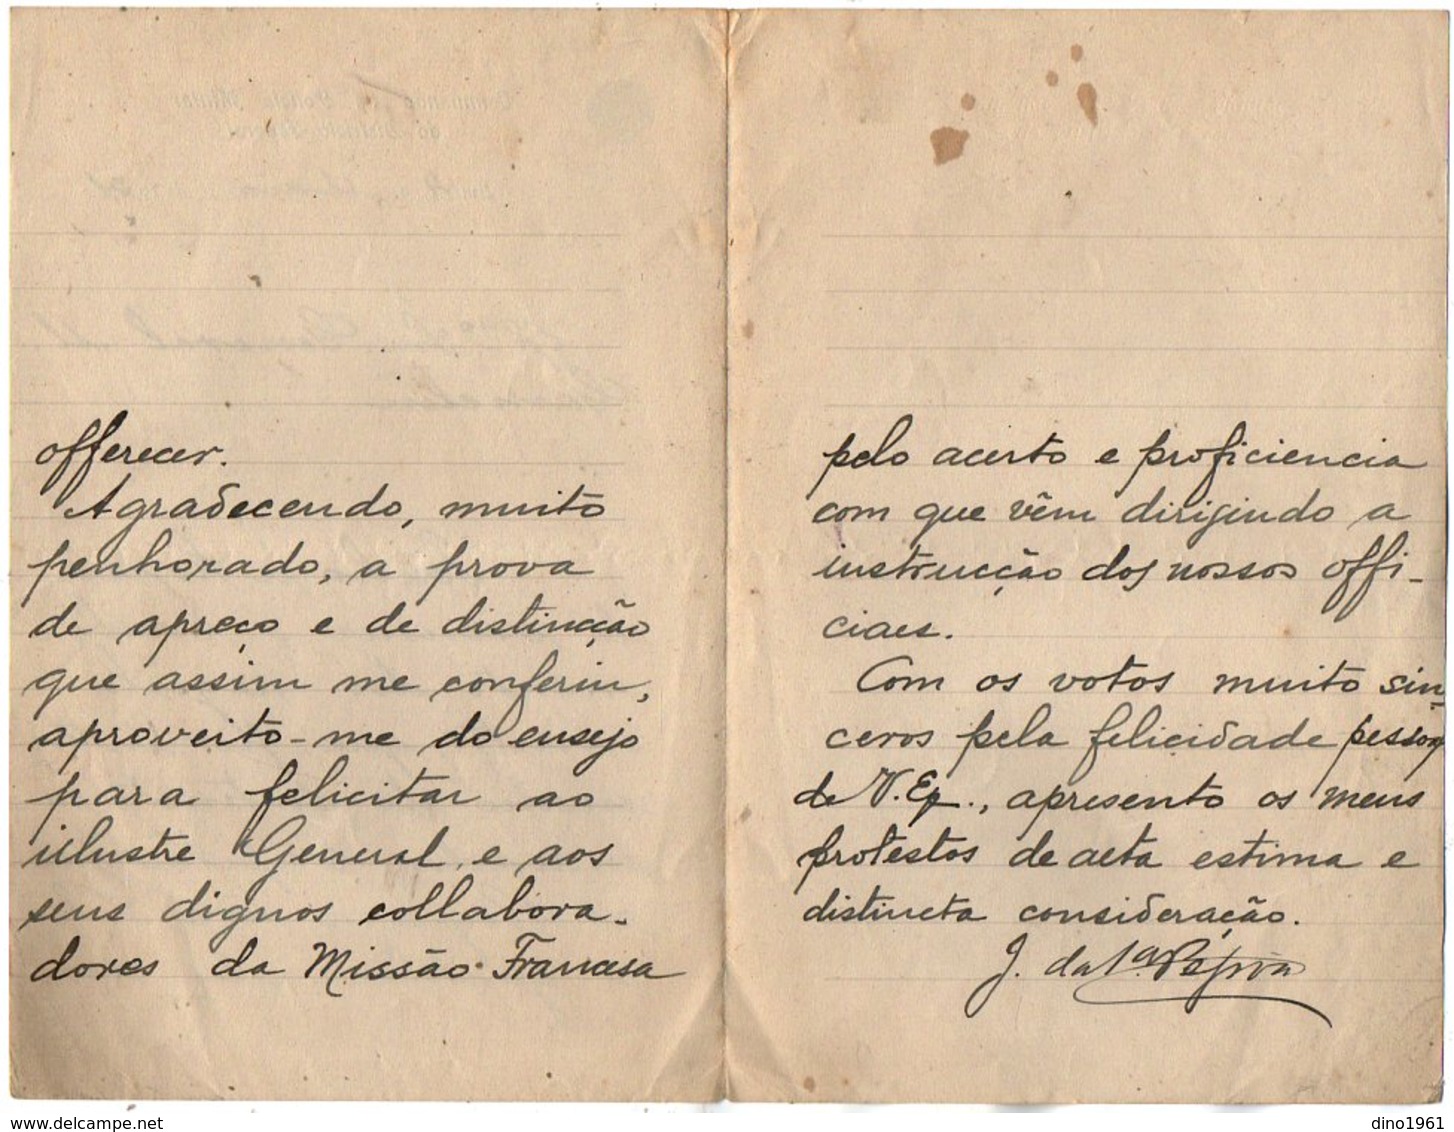 offerecer.
Agradecendo, muito
penhorado, a prova
de apreço e de distincção
que assim me conferiu,
aproveito-me do ensejo
para felicitar ao
illustre General, e aos
seus dignos collabora-
dores da Missão Francesa
pelo acerto e proficiencia
com que vêm dirigindo a
instrucção dos nossos offi-
ciaes.
Com os votos muito sin-
ceros pela felicidade pessoal
de V. Ex., apresento os meus
protestos de alta estima e
distincta consideração.
J. da
www.delcampe.net
dino1961